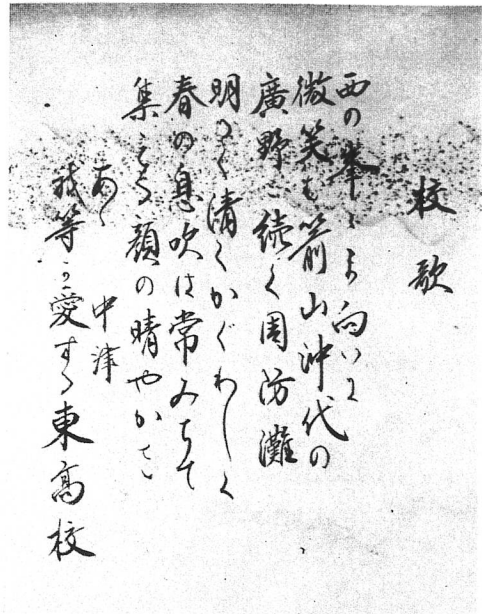 校歌
西の峯々ま向いに
微笑む箭山沖代の
廣野に続く周防灘
明るく清くかぐわしく
春の息吹は常みちて
集える顔の晴やかさ
あゝ 中津
我等が愛する東高校